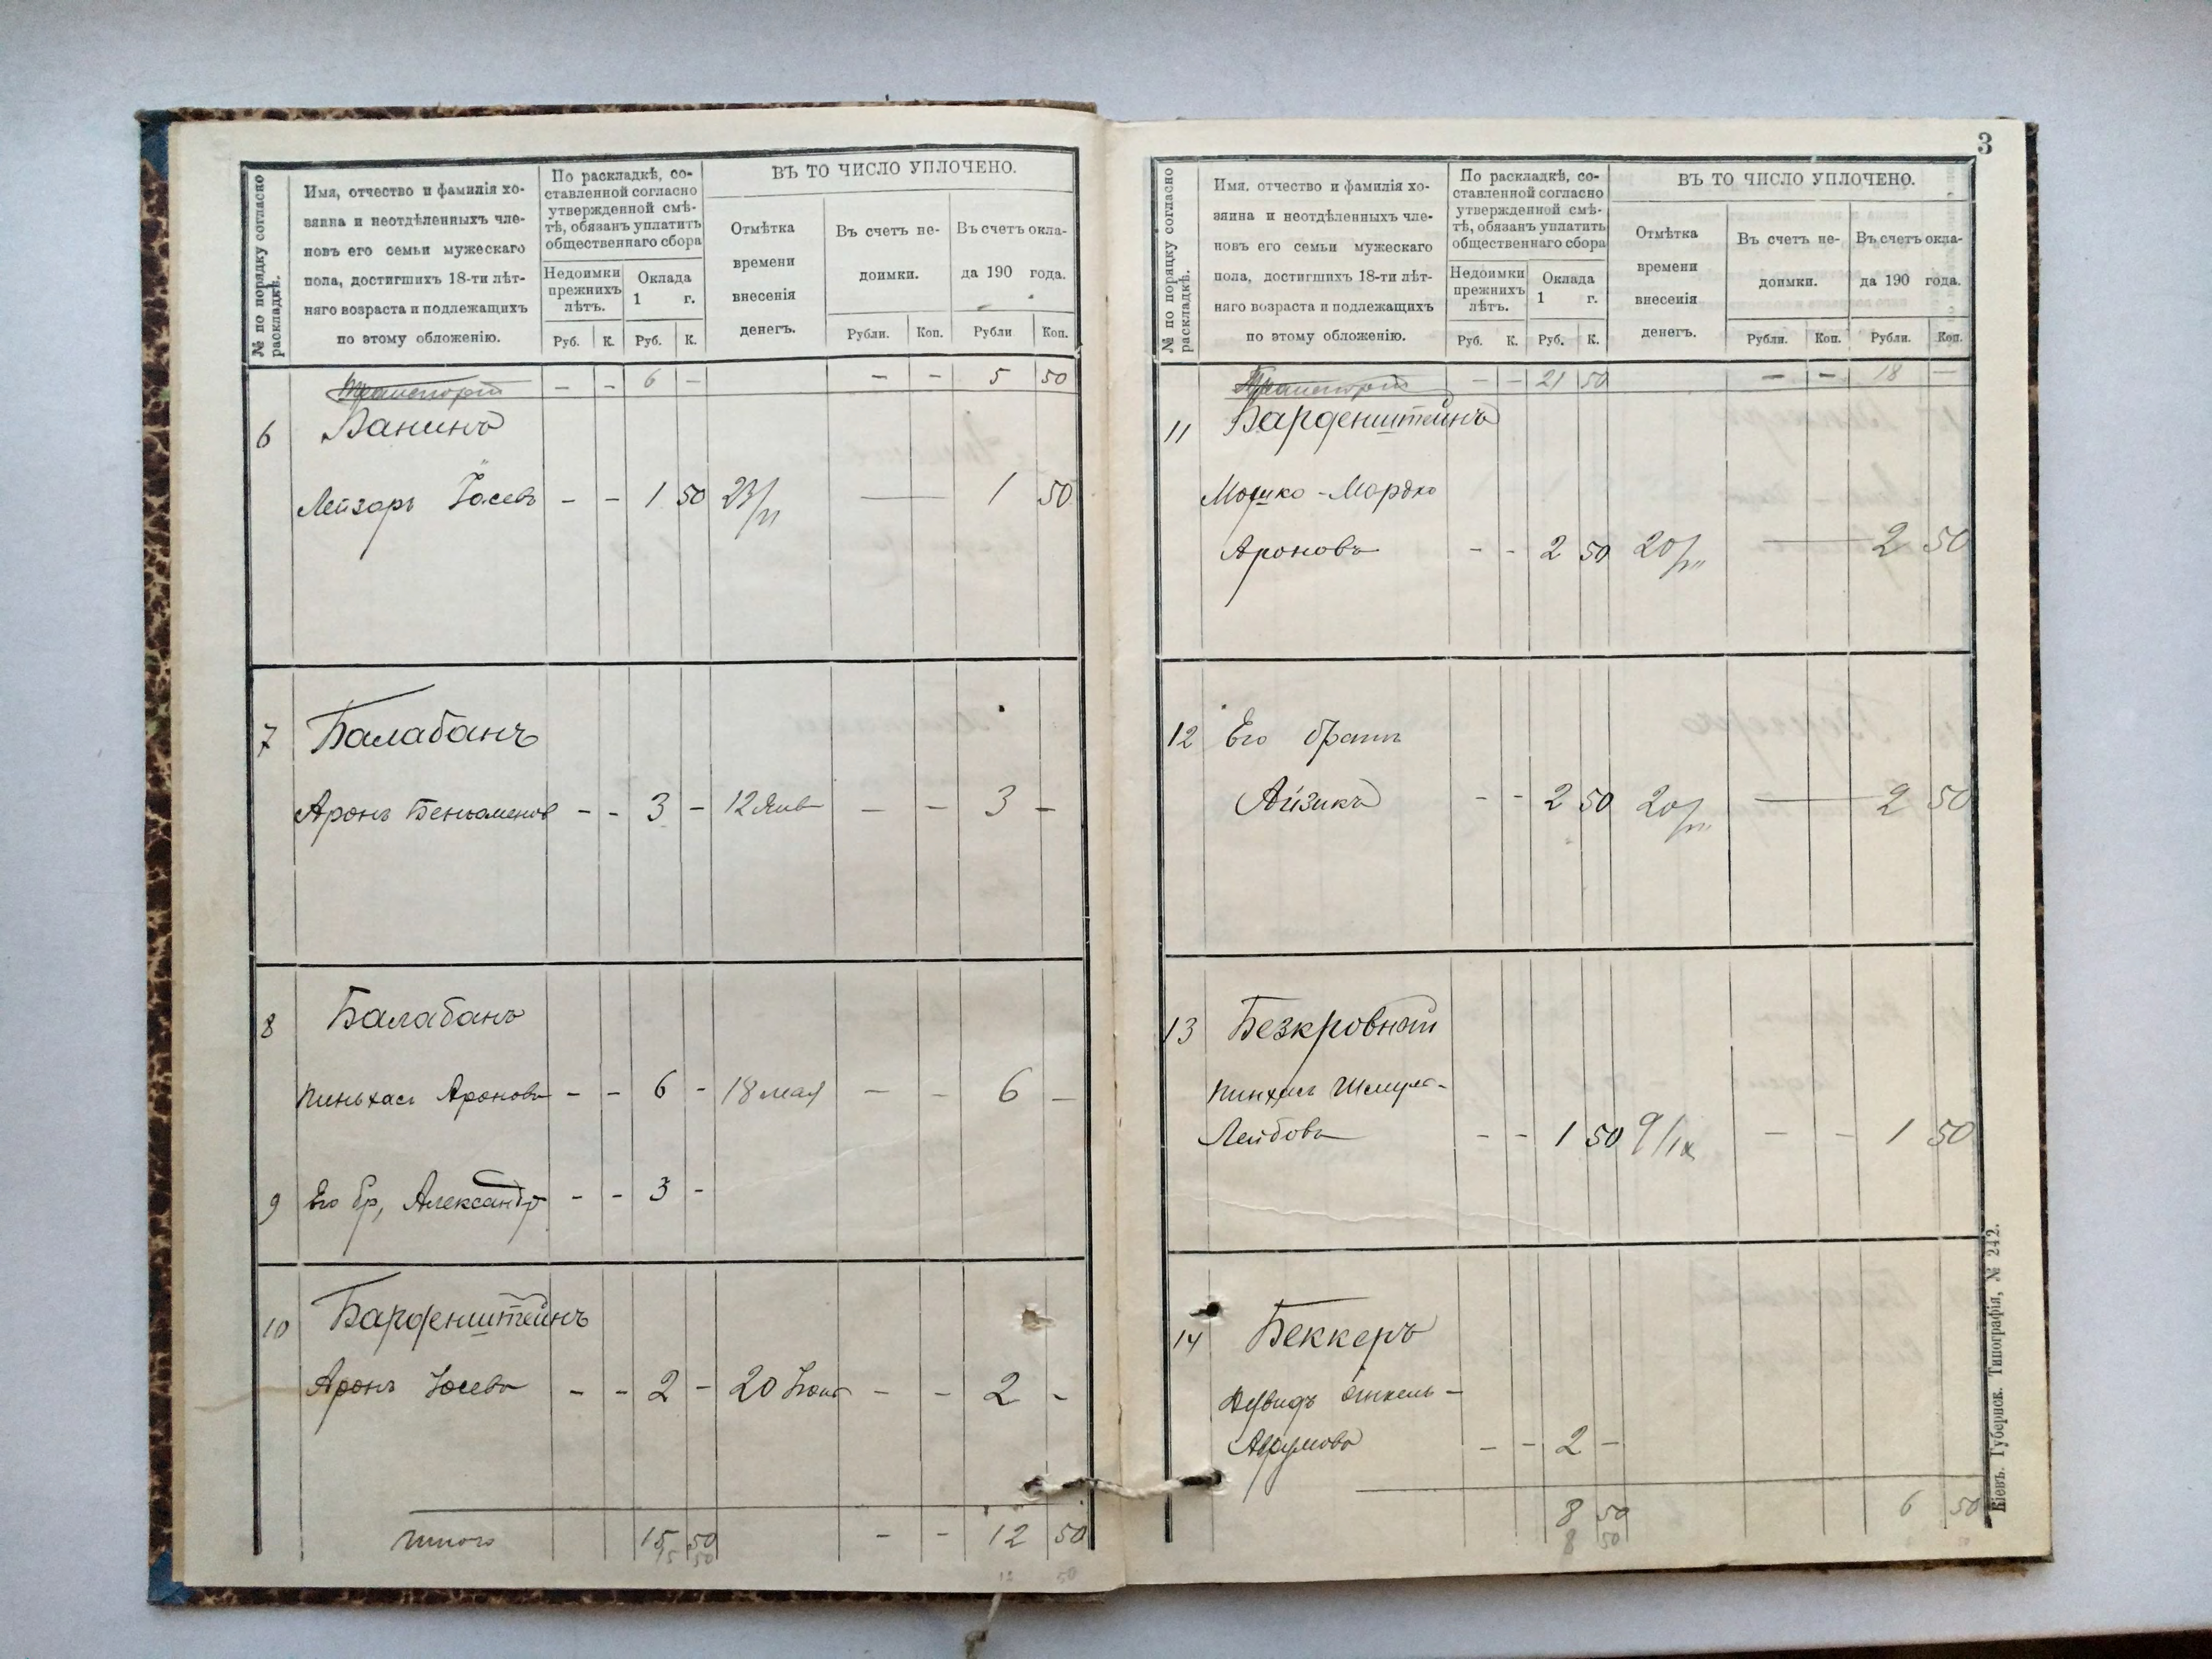 № по порядку согласно раскладкѣ.
Имя, отчество и фамилія хо-
зяина и неотдѣленныхъ чле-
новъ его семьи мужескаго
пола, достигшихъ 18-ти лѣт-
няго возраста и подлежащихъ
по этому обложенію.
По раскладкѣ, со-
ставленной согласно
утвержденной смѣ-
тѣ, обязанъ уплатить
общественнаго сбора
Недоимки
прежнихъ
лѣтъ.
Оклада
1 г.
Руб. К. Руб. К.
ВЪ ТО ЧИСЛО УПЛОЧЕНО.
Отмѣтка
времени
внесенія
денегъ.
Въ счетъ не-
доимки.
Въ счетъ окла-
да 190 года.
Рубли. Коп. Рубли Коп.
Транспортъ - - 6 - - - 5 50
6 Банинъ
Лейзоръ Іосевъ - - 1 50 23/VI — 1 50
7 Балабанъ
Аронъ Беньяменов - - 3 - 12 Янв - - 3 -
8 Балабанъ
Пиньхасъ Ароновъ - - 6 - 18 мая - - 6 -
9 Его бр, Александр - - 3 -
10 Барденштейнъ
Аронъ Іосевъ - - 2 - 20 - - 2 -
Итого 15 50 - - 12 50
15 50
12 50
3
№ по порядку согласно раскладкѣ.
Имя, отчество и фамилія хо-
зяина и неотдѣленныхъ чле-
новъ его семьи мужескаго
пола, достигшихъ 18-ти лѣт-
няго возраста и подлежащихъ
по этому обложенію.
По раскладкѣ, со-
ставленной согласно
утвержденной смѣ-
тѣ, обязанъ уплатить
общественнаго сбора
Недоимки
прежнихъ
лѣтъ.
Оклада
1 г.
Руб. К. Руб. К.
ВЪ ТО ЧИСЛО УПЛОЧЕНО.
Отмѣтка
времени
внесенія
денегъ.
Въ счетъ не-
доимки.
Въ счетъ окла-
да 190 года.
Рубли. Коп. Рубли. Коп.
Транспортъ - - 21 50 - - 18 -
11 Барденштейнъ
Мошко-Мордко
Ароновъ - - 2 50 20/VII — 2 50
12 Его братъ
Айзикъ - - 2 50 20/VII — 2 50
13 Безкровный
Пинхасъ Шмуль-
Лейбовъ - - 1 50 9/IX - - 1 50
14 Беккеръ
Дувидъ -
- - 2 -
8 50 6 50
8 50
Кіевъ. Губернск. Типографія, № 242.